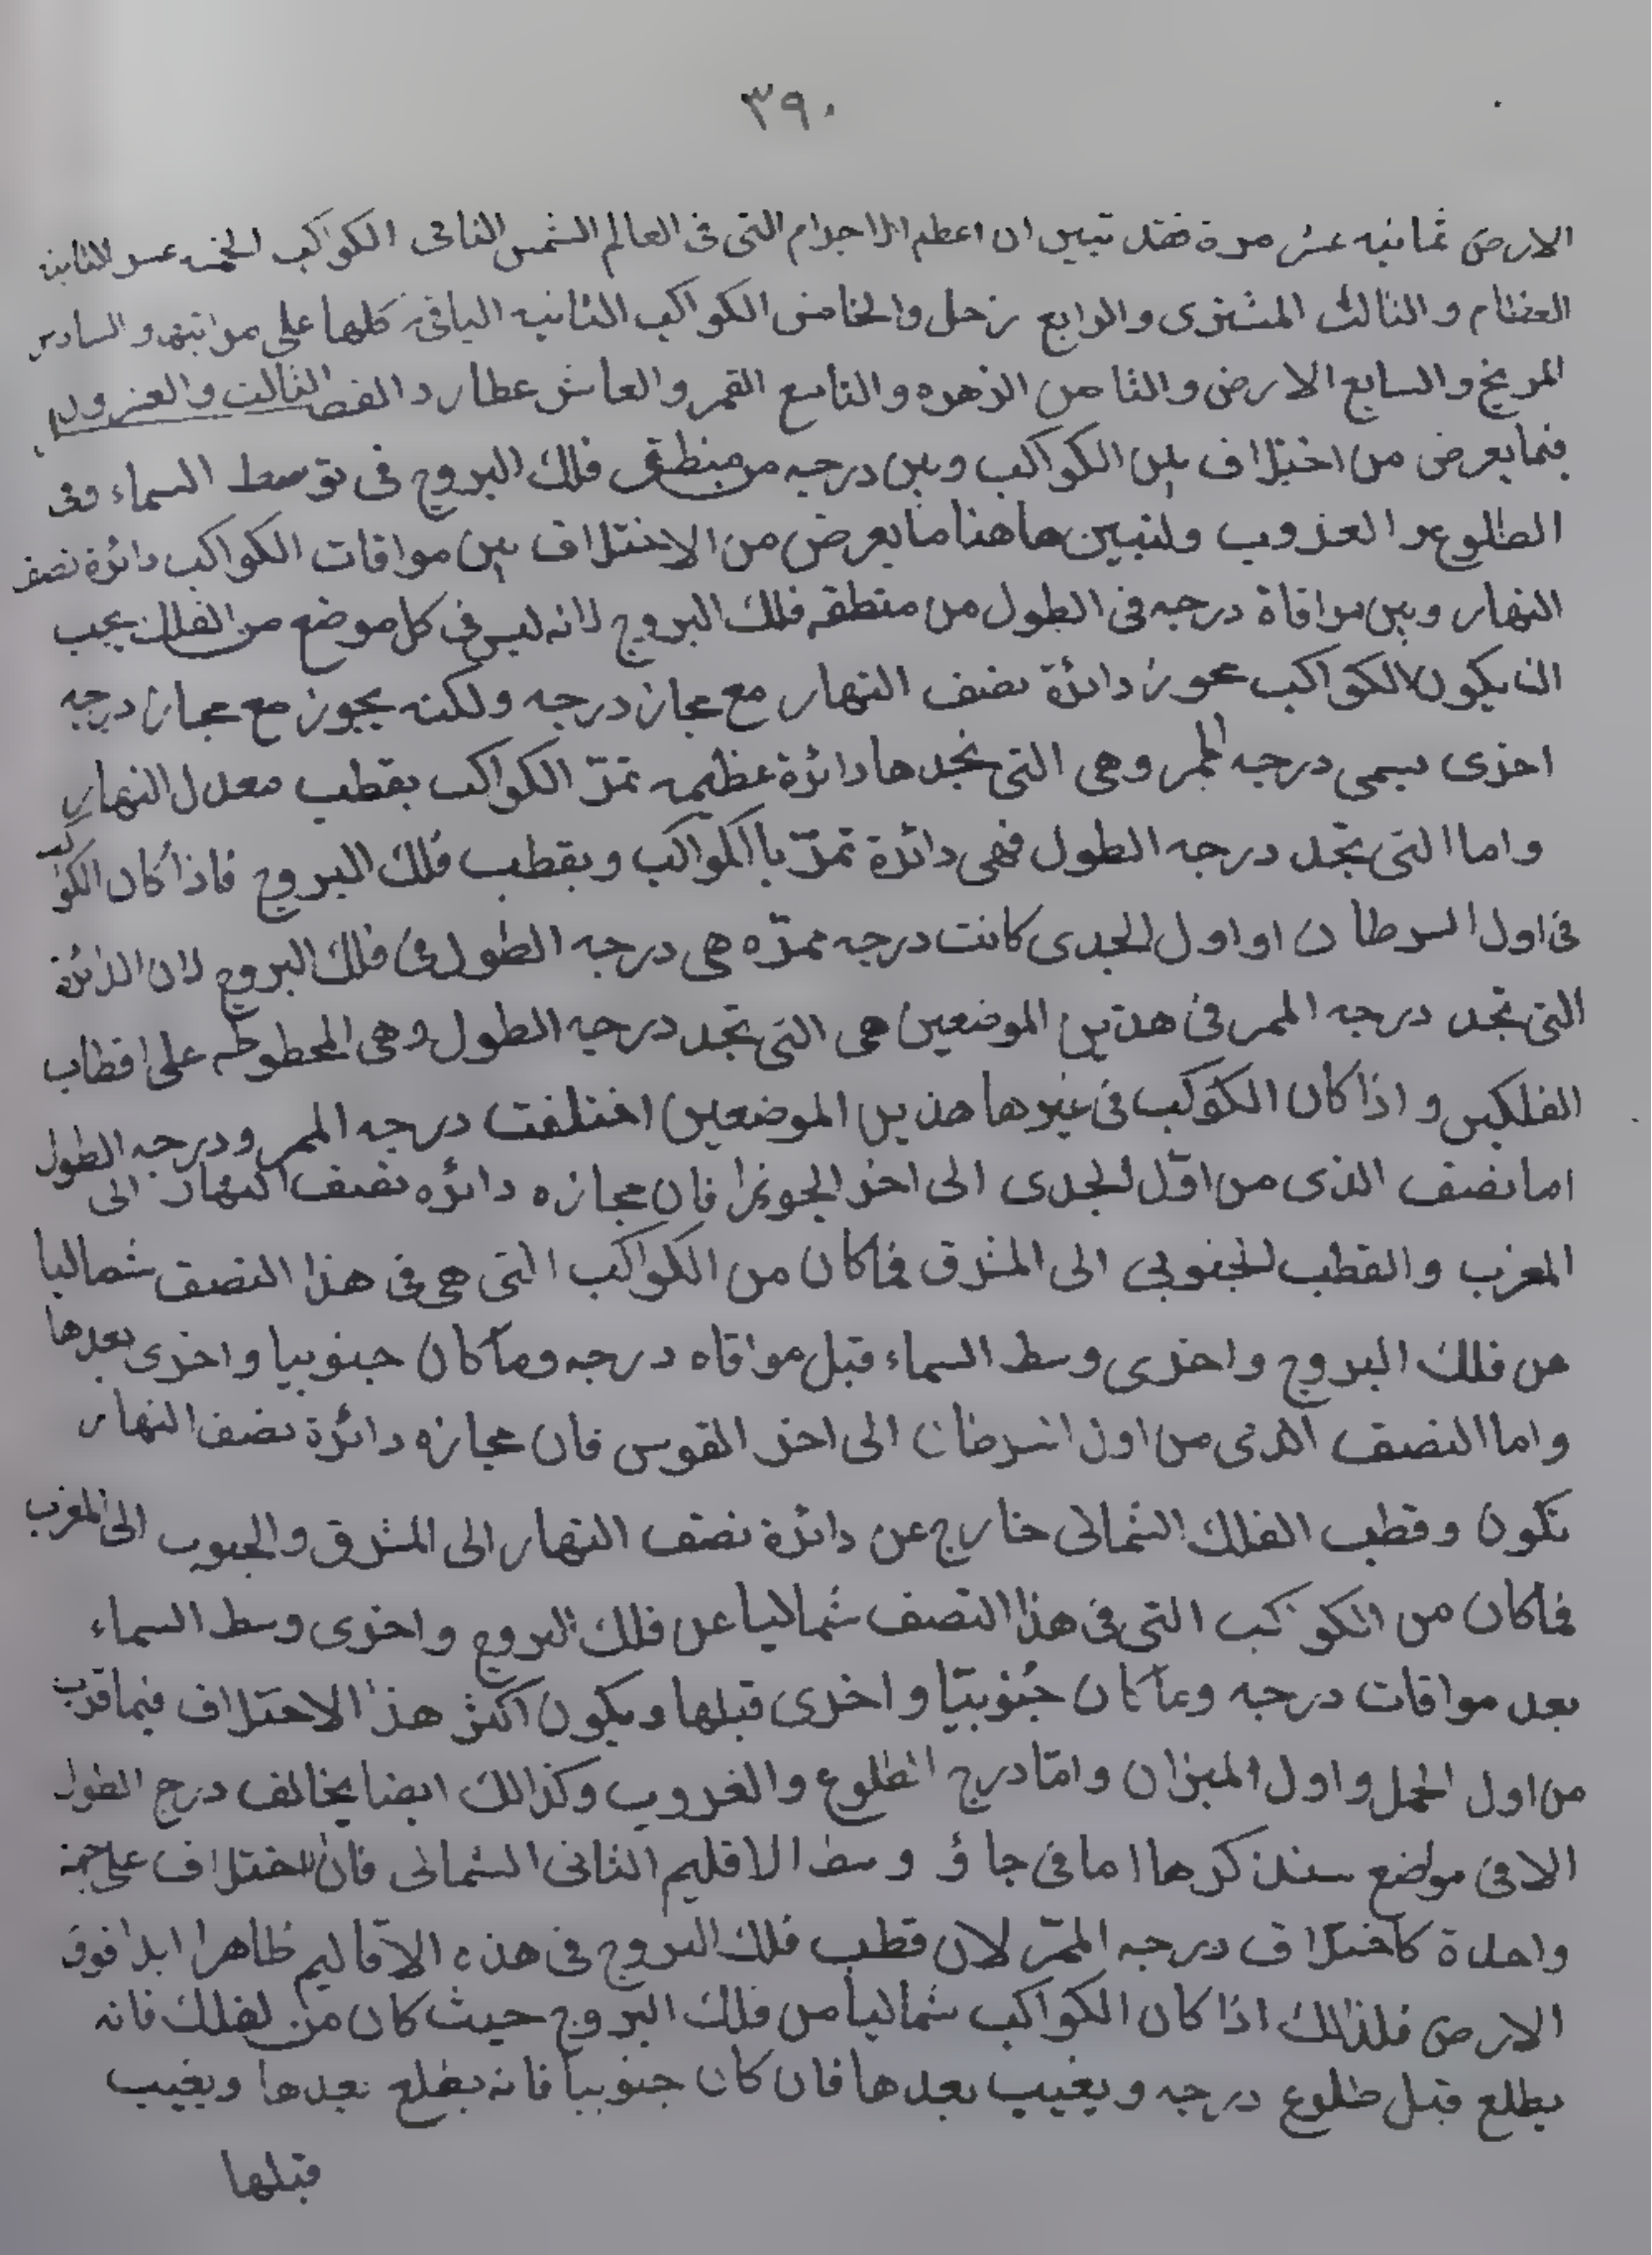 ٣٩٠
الارض ثمانيه عشر مرة فقد تبين ان اعظم الاجرام التى فى العالم الشمس الثانى الكواكب الخمسه عسر الثابته
العظام و الثالث المشترى والرابع زحل والخامس الكواكب الثابيه الباقيه كلها على مراتبها والسادس
المريخ والسابع الارض والثامن الزهره والتاسع القمر والعاشر عطارد الفصل الثالث والعشرون
فيما يعرض من اختلاف بين الكواكب وبين درجه من منطقه فلك البروج فى توسط السماء وفى
الطلوع والغروب ولنبين هاهنا ما يعرض من الاختلاف بين موافات الكواكب دائرة نصف
النهار وبين موافاة درجه فى الطول من منطقه فلك البروج لانه ليس فى كل موضع من الفلك يجب
ان يكون الكواكب يجوز دائرة نصف النهار مع مجاز درجه ولكنه يجوز مع مجاز درجه
اخرى يسمى درجه الممر وهى التى نجدها دائرة عظيمه تمرّ الكواكب بقطب معدل النهار
واما التى تجد درجه الطول فهى دائرة تمرّ بالكواكب وبقطب فلك البروج فاذا كان الكوكب
فى اول السرطان او اول الجدى كانت درجه ممرّه هى درجه الطول فى فلك البروج لان الدائرة
التى تجد درجه الممر فى هذين الموضعين هى التى تجد درجه الطول وهى المخطوطه على اقطاب
الفلكين و اذا كان الكوكب فى غيرها هذين الموضعين اختلفت درجه الممر ودرجه الطول
اما نصف الذى من اوّل الجدى الى اخر الجوزا فان مجازه دائره نصف النهار الى
المغرب والقطب الجنوبى الى المشرق فما كان من الكواكب التى هى فى هذا النصف شماليا
من فلك البروج واخرى وسط السماء قبل موافاه درجه وما كان جنوبيا واخرى بعدها
واما النصف الذى من اول السرطان الى اخر القوس فان مجازه دائرة نصف النهار
تكون وقطب الفلك الشمالى خارج عن دائرة نصف النهار الى المشرق والجنوب الى المغرب
فما كان من الكواكب التى فى هذا النصف شماليا عن فلك البروج واخرى وسط السماء
بعد موافات درجه وما كان جُنوبيّا واخرى قبلها ويكون اكثر هذا الاختلاف فيما قرب
من اول الحمل واول الميزان وامّا درج الطلوع والغروب وكذالك ايضا يخالف درج الطول
الا فى مواضع سنذكرها اما فى جاؤ وسط الاقليم الثانى الشمالى فان الاختلاف على جهة
واحدة كاختلاف درجه الممرّ لان قطب فلك البروج فى هذه الاقاليم ظاهرا ابدا فوق
الارض فلذالك اذا كان الكواكب شماليا من فلك البروج حيث كان من الفلك فانه
يطلع قبل طلوع درجه ويغيب بعدها فان كان جنوبيا فانه يطلع بعدها ويغيب
قبلها